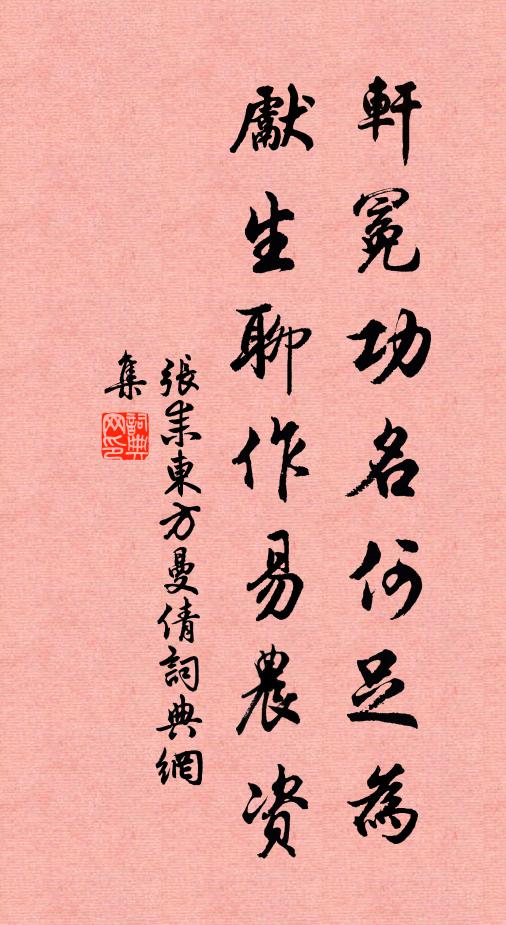 軒冕功名何足為
獻生聊作易農資
張耒東方曼倩詞典網
集
詞典
网印